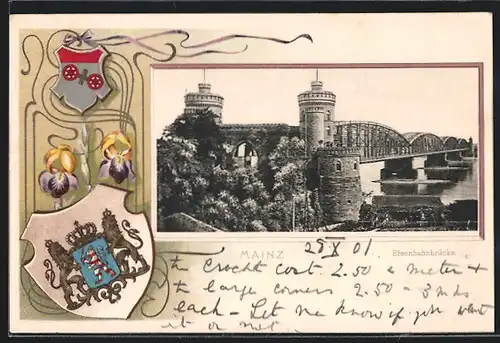 MAINZ
Eisenbahnbrücke
29 X 01
The crocht cost 2.50 a meter &
the large corners 2.50 - 3 mks
each - Let me know if you want
it or not.